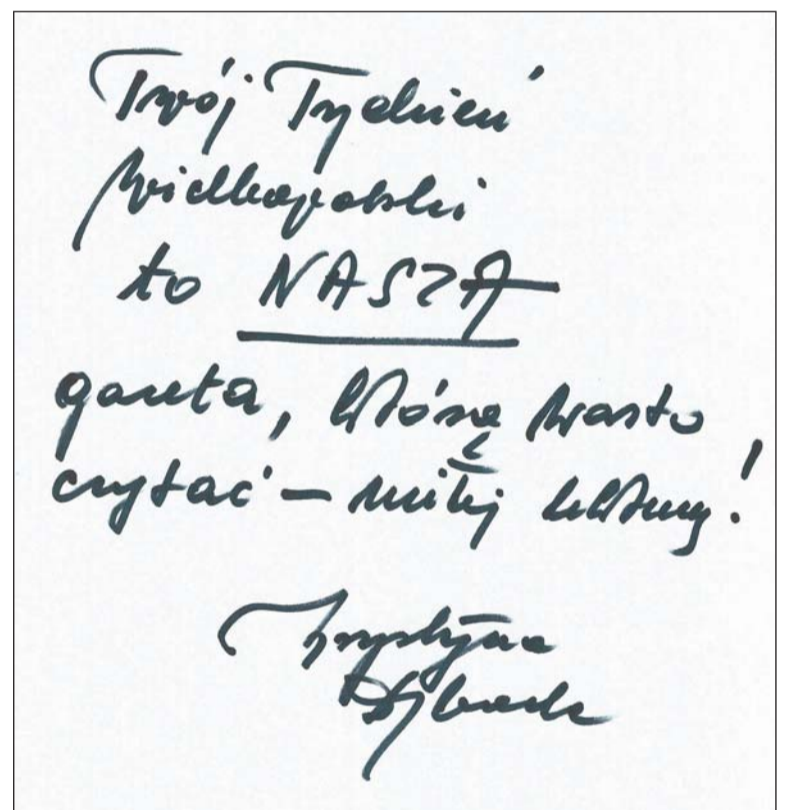 Twój Tydzień
Wielkopolski
to NASZA
gazeta, którą warto
czytać – miłej lektury!
Krystyna